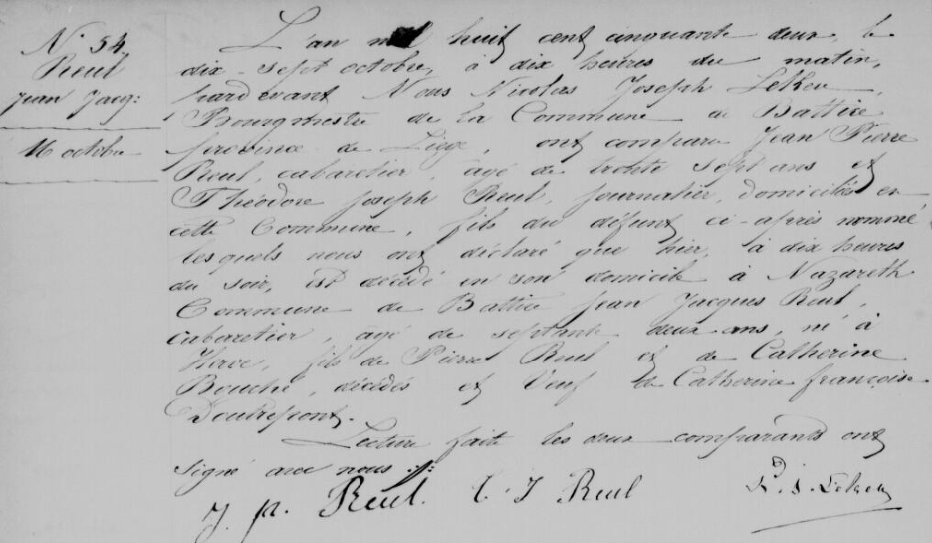 N° 54
Reul
Jean Jacq:
16 octobre
L'an mil huit cent cinquante deux, le
dix-sept octobre, à dix heures du matin,
pardevant Nous Nicolas Joseph Lekeu,
Bourgmestre de la Commune de Battice
province de Liége, ont comparu Jean Pierre
Reul, cabaretier, agé de trente sept ans et
Théodore Joseph Reul, journalier, domiciliés en
cette Commune, fils du défunt ci-après nommé
lesquels nous ont déclaré que hier, à dix heures
du soir, est décédé en son domicile à Nazareth
Commune de Battice Jean Jacques Reul,
cabaretier, agé de septante deux ans, né à
Herve, fils de Pierre Reul et de Catherine
Bouché, décédés et Veuf de Catherine françoise
Doutrepont.
Lecture faite les deux comparants ont
signé avec nous ./:
J. p. Reul. t. J Reul N. J. Lekeu